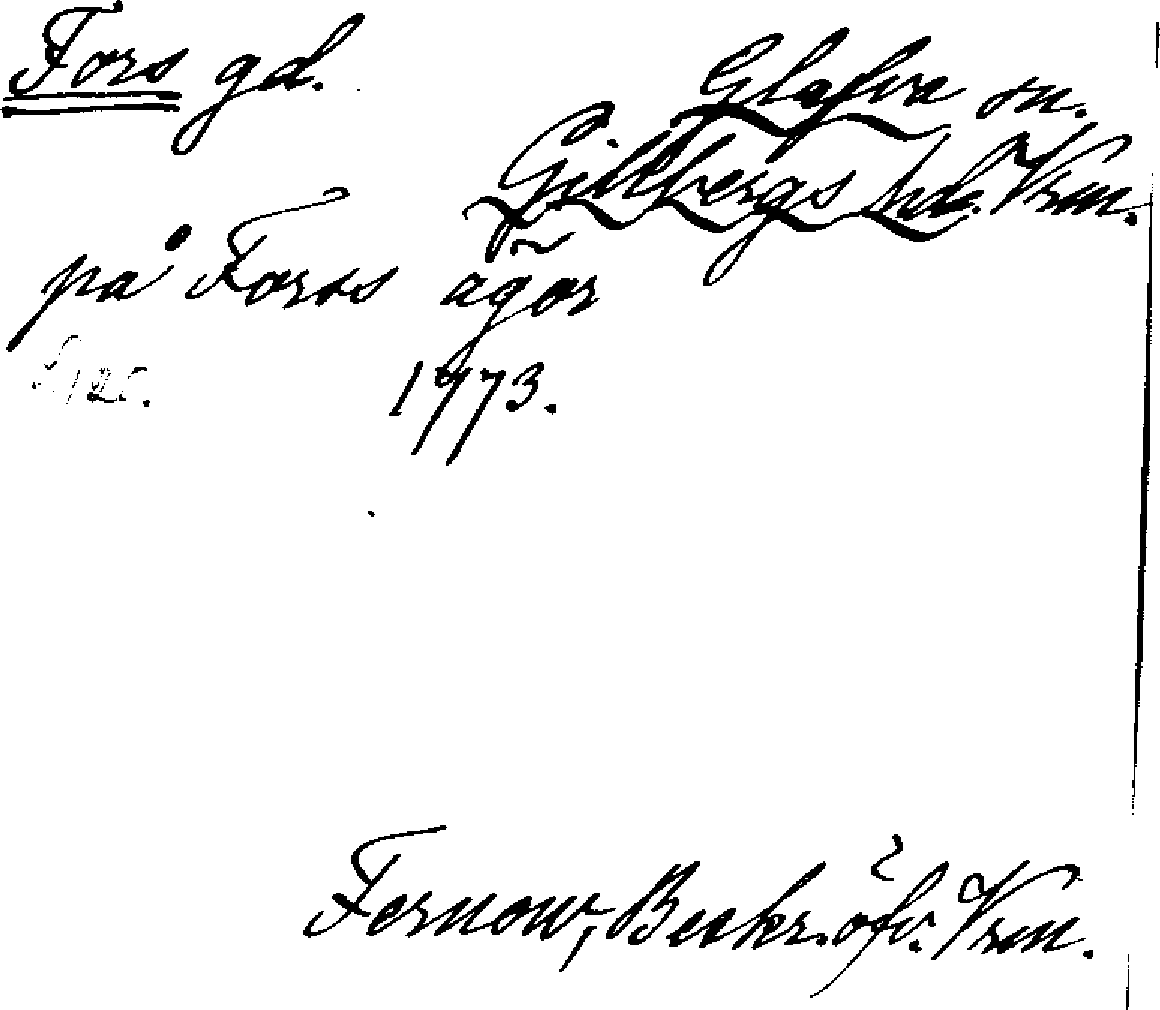 Fors gd.
Glafva sn.
Gillbergs hd. Vrm.
på Forss ägor
S. 120.
1773.
Fernow, Beskr. öfv. Vrm.